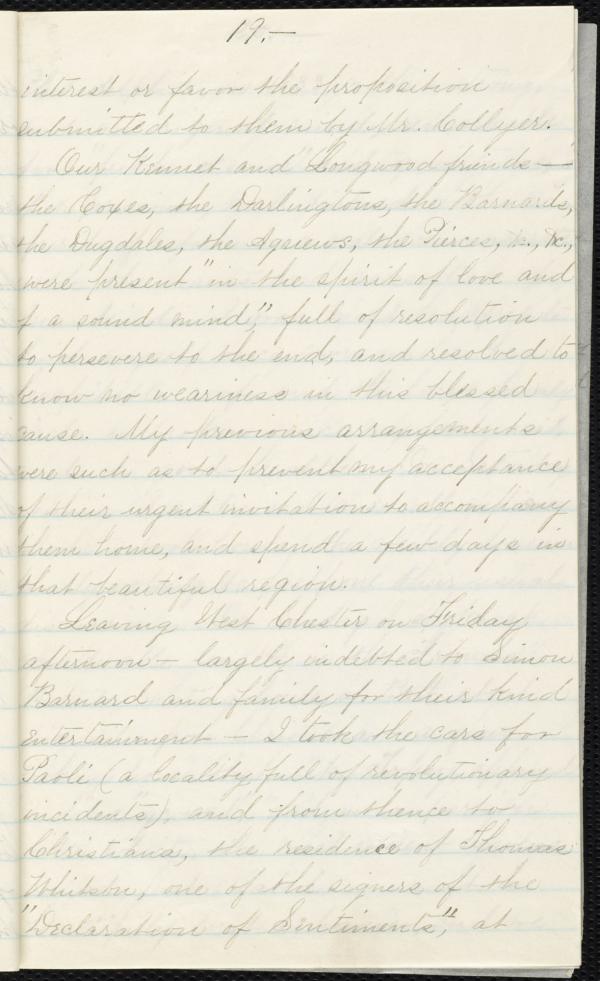 19.—
interest or favor the proposition
submitted to them by Mr. Collyer.
Our Kennet and Longwood friends —
the Coxes, the Darlingtons, the Barnards,
the Dugdales, the Agnews, the Pierces, &c., &c.,
were present "in the spirit of love and
of a sound mind," full of resolution
to persevere to the end, and resolved to
know no weariness in this blessed
cause. My previous arrangements
were such as to prevent my acceptance
of their urgent invitation to accompany
them home, and spend a few days in
that beautiful region.
Leaving West Chester on Friday
afternoon — largely indebted to Simon
Barnard and family for their kind
entertainment — I took the cars for
Paoli (a locality full of revolutionary
incidents), and from thence to
Christiana, the residence of Thomas
Whitson, one of the signers of the
"Declaration of Sentiments", at